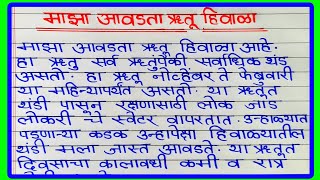 माझा आवडता ऋतू हिवाळा
माझा आवडता ऋतू हिवाळा आहे.
हा ऋतू सर्व ऋतुपैकी सर्वाधिक थंड
असतो. हा ऋतू नोव्हेंबर ते फेब्रुवारी
या महिन्यापर्यंत असतो. या ऋतूत
थंडी पासून रक्षणासाठी लोक जाड
लोकरी चे स्वेटर वापरतात. उन्हाळ्यात
पडणाऱ्या कडक उन्हापेक्षा हिवाळ्यातील
थंडी मला जास्त आवडते. या ऋतूत
दिवसाचा कालावधी कमी व रात्र